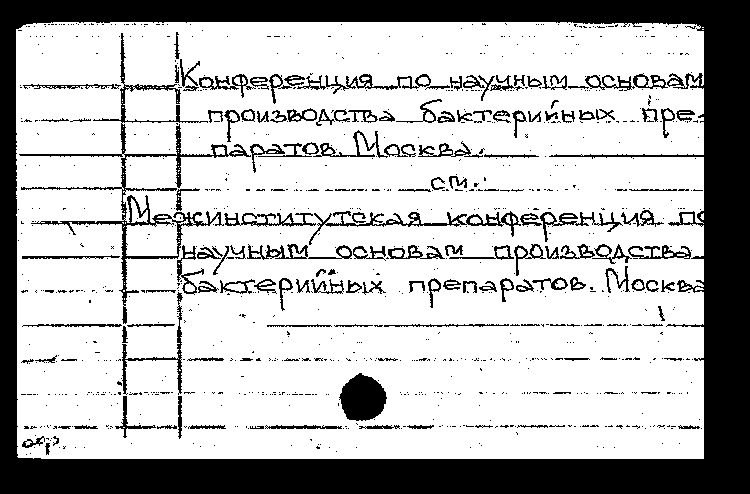 Конференция по научным основам
производства бактерийных пре-
паратов. Москва.
см.
Межинститутская конференция по
научным основам производства
бактерийных препаратов. Москва